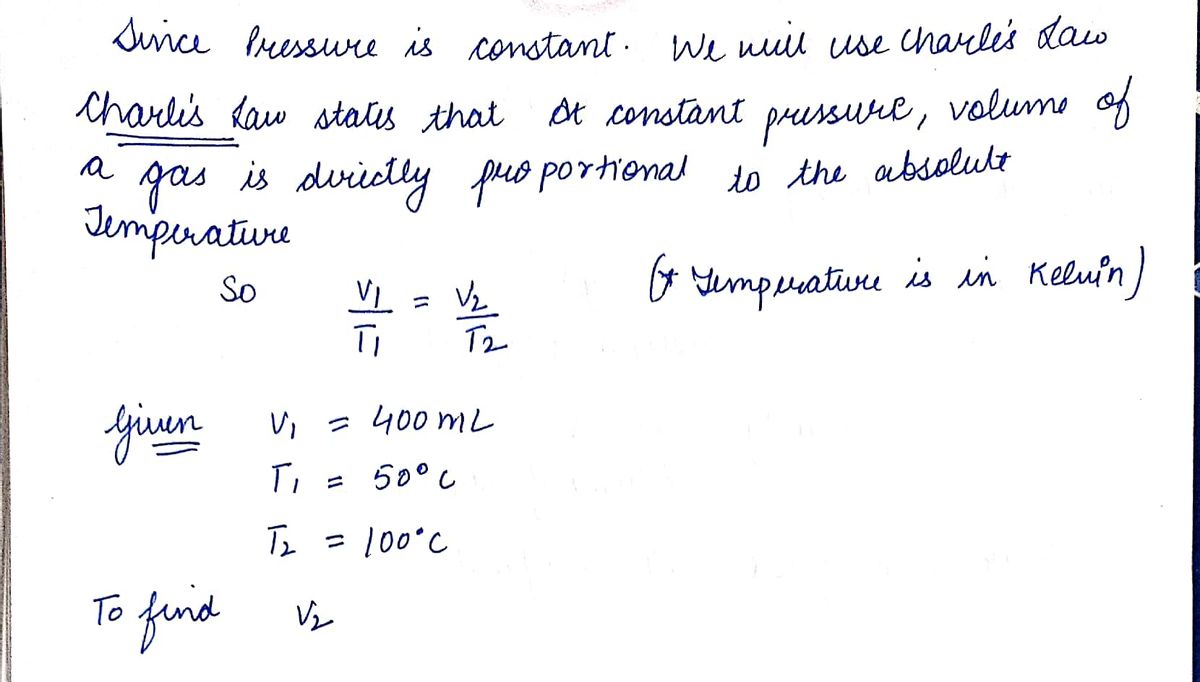 Since Pressure is constant. We will use Charle's Law
Charle's Law states that At constant pressure, volume of
a gas is directly proportional to the absolute
Temperature
So V1/T1 = V2/T2 (* Temperature is in Kelvin)
Given V1 = 400 mL
T1 = 50°C
T2 = 100°C
To find V2